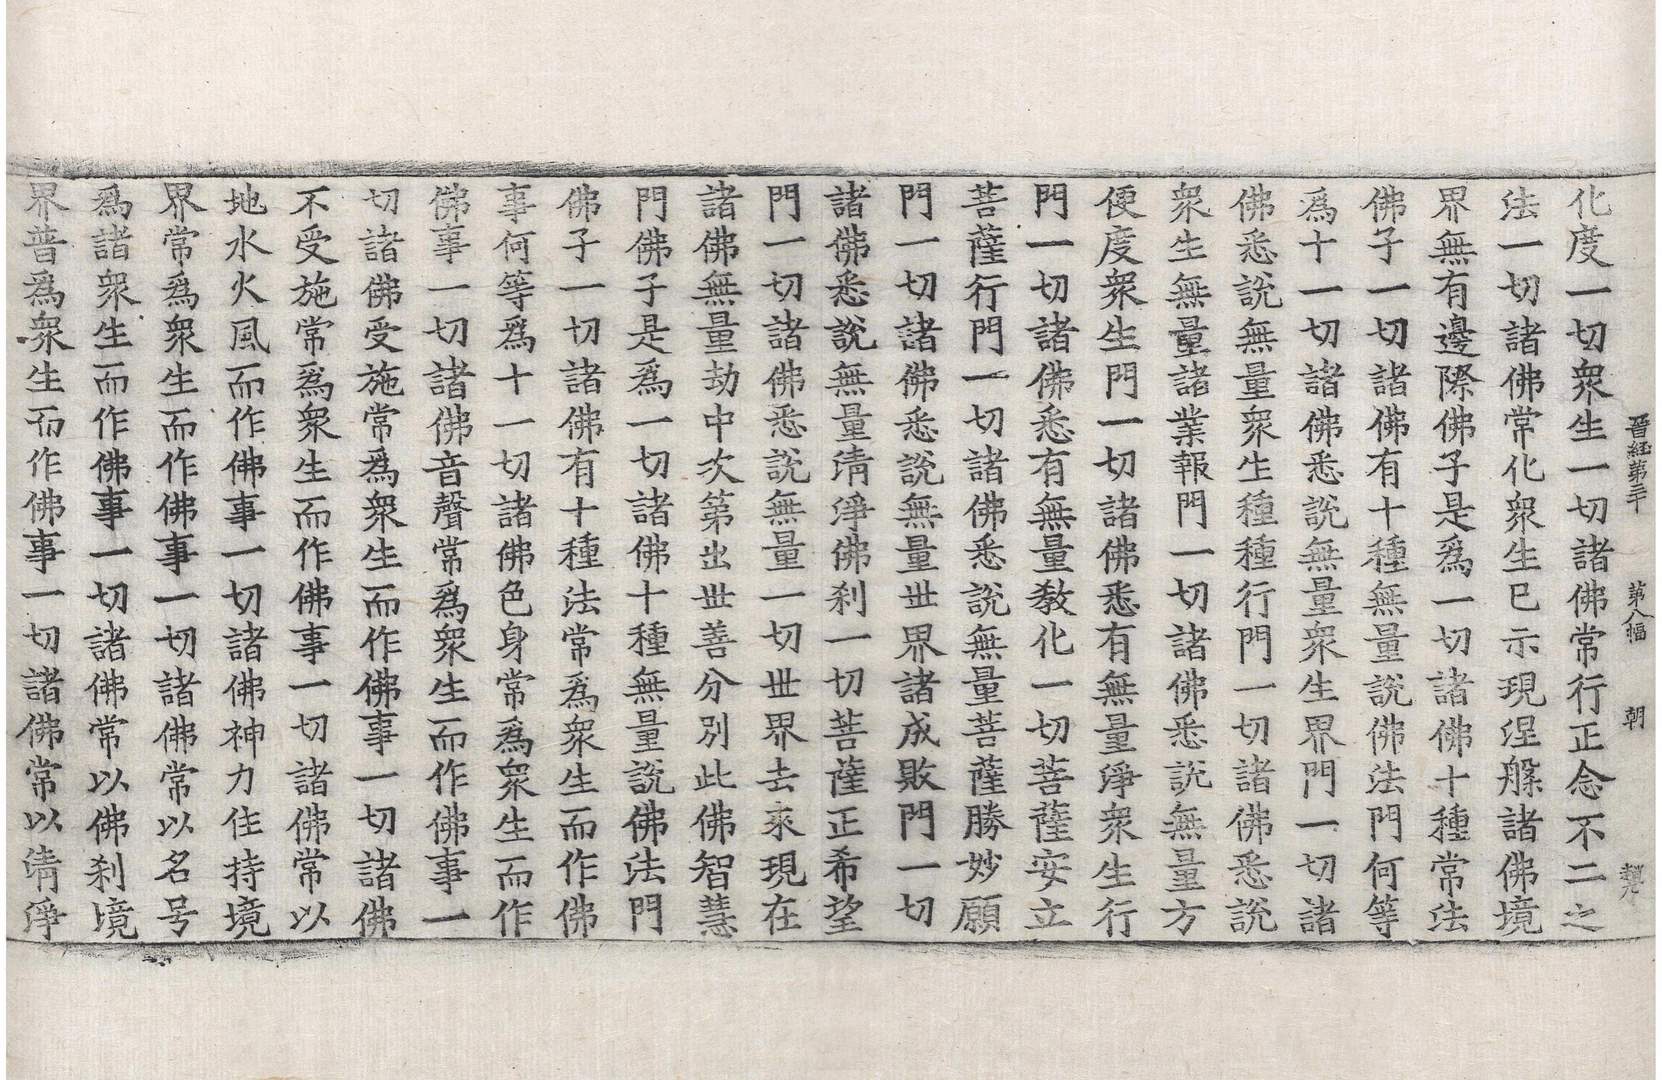 晉経第三十 第八幅 朝
化度一切衆生一切諸佛常行正念不二之
法一切諸佛常化衆生已示現涅槃諸佛境
界無有邊際佛子是爲一切諸佛十種常法
佛子一切諸佛有十種無量說佛法門何等
爲十一切諸佛悉說無量衆生界門一切諸
佛悉說無量衆生種種行門一切諸佛悉說
衆生無量諸業報門一切諸佛悉說無量方
便度衆生門一切諸佛悉有無量淨衆生行
門一切諸佛悉有無量教化一切菩薩安立
菩薩行門一切諸佛悉說無量菩薩勝妙願
門一切諸佛悉說無量世界諸成敗門一切
諸佛悉說無量清淨佛刹一切菩薩正希望
門一切諸佛悉說無量一切世界去来現在
諸佛無量劫中次第出世善分別此佛智慧
門佛子是爲一切諸佛十種無量說佛法門
佛子一切諸佛有十種法常爲衆生而作佛
事何等爲十一切諸佛色身常爲衆生而作
佛事一切諸佛音聲常爲衆生而作佛事一
切諸佛受施常爲衆生而作佛事一切諸佛
不受施常爲衆生而作佛事一切諸佛常以
地水火風而作佛事一切諸佛神力住持境
界常爲衆生而作佛事一切諸佛常以名号
爲諸衆生而作佛事一切諸佛常以佛刹境
界普爲衆生而作佛事一切諸佛常以清淨